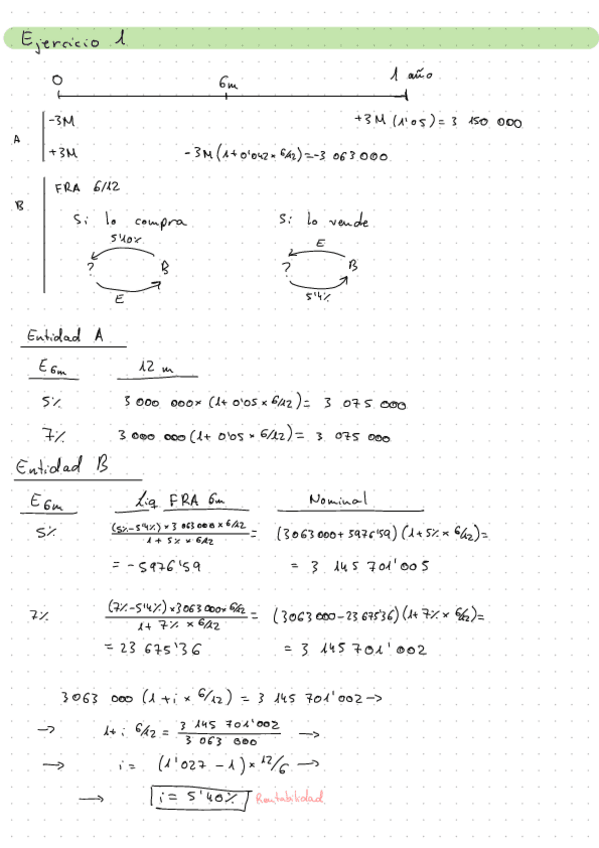 Ejercicio 1
0 6m 1 año
A
-3M +3M (1'05) = 3 150 000
+3M -3M (1+0'042 × 6/12) = -3 063 000
B
FRA 6/12
Si lo compra Si lo vende
5'40% E
? B ? B
E 5'4%
Entidad A
E6m 12 m
5% 3 000 000 × (1+ 0'05 × 6/12) = 3 075 000
7% 3 000 000 (1+ 0'05 × 6/12) = 3 075 000
Entidad B
E6m Liq FRA 6m Nominal
5% (5%-5'4%) × 3 063 000 × 6/12 / 1 + 5% × 6/12 = (3063 000 + 5976'59) (1+5% × 6/12) =
= -5976'59 = 3 145 701'005
7% (7%-5'4%) × 3063 000 × 6/12 / 1 + 7% × 6/12 = (3063 000 - 23 675'36) (1+7% × 6/12) =
= 23 675'36 = 3 145 701'002
3063 000 (1 + i × 6/12) = 3 145 701'002 →
→ 1+ i 6/12 = 3 145 701'002 / 3 063 000 →
→ i = (1'027 - 1) × 12/6 →
→ i = 5'40% Rentabilidad